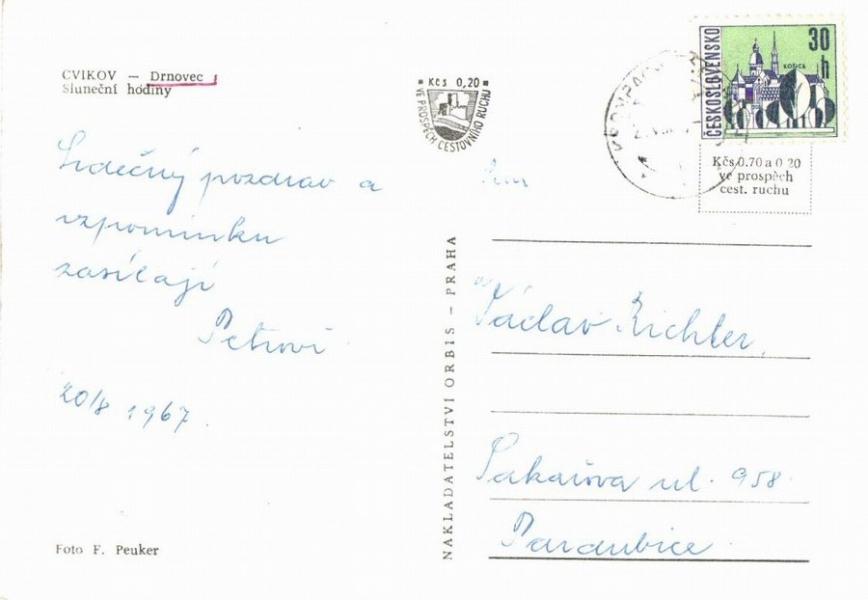 CVIKOV — Drnovec
Sluneční hodiny
Kčs 0,20
VE PROSPĚCH CESTOVNÍHO RUCHU
ČESKOSLOVENSKO
30 h
KOŠICE
Kčs 0.70 a 0 20
ve prospěch
cest. ruchu
Srdečný pozdrav a
vzpomínku
zasílají
Petrovi
20/8 1967.
Foto F. Peuker
NAKLADATELSTVÍ ORBIS – PRAHA
Václav Richter,
ul. 958.
Pardubice